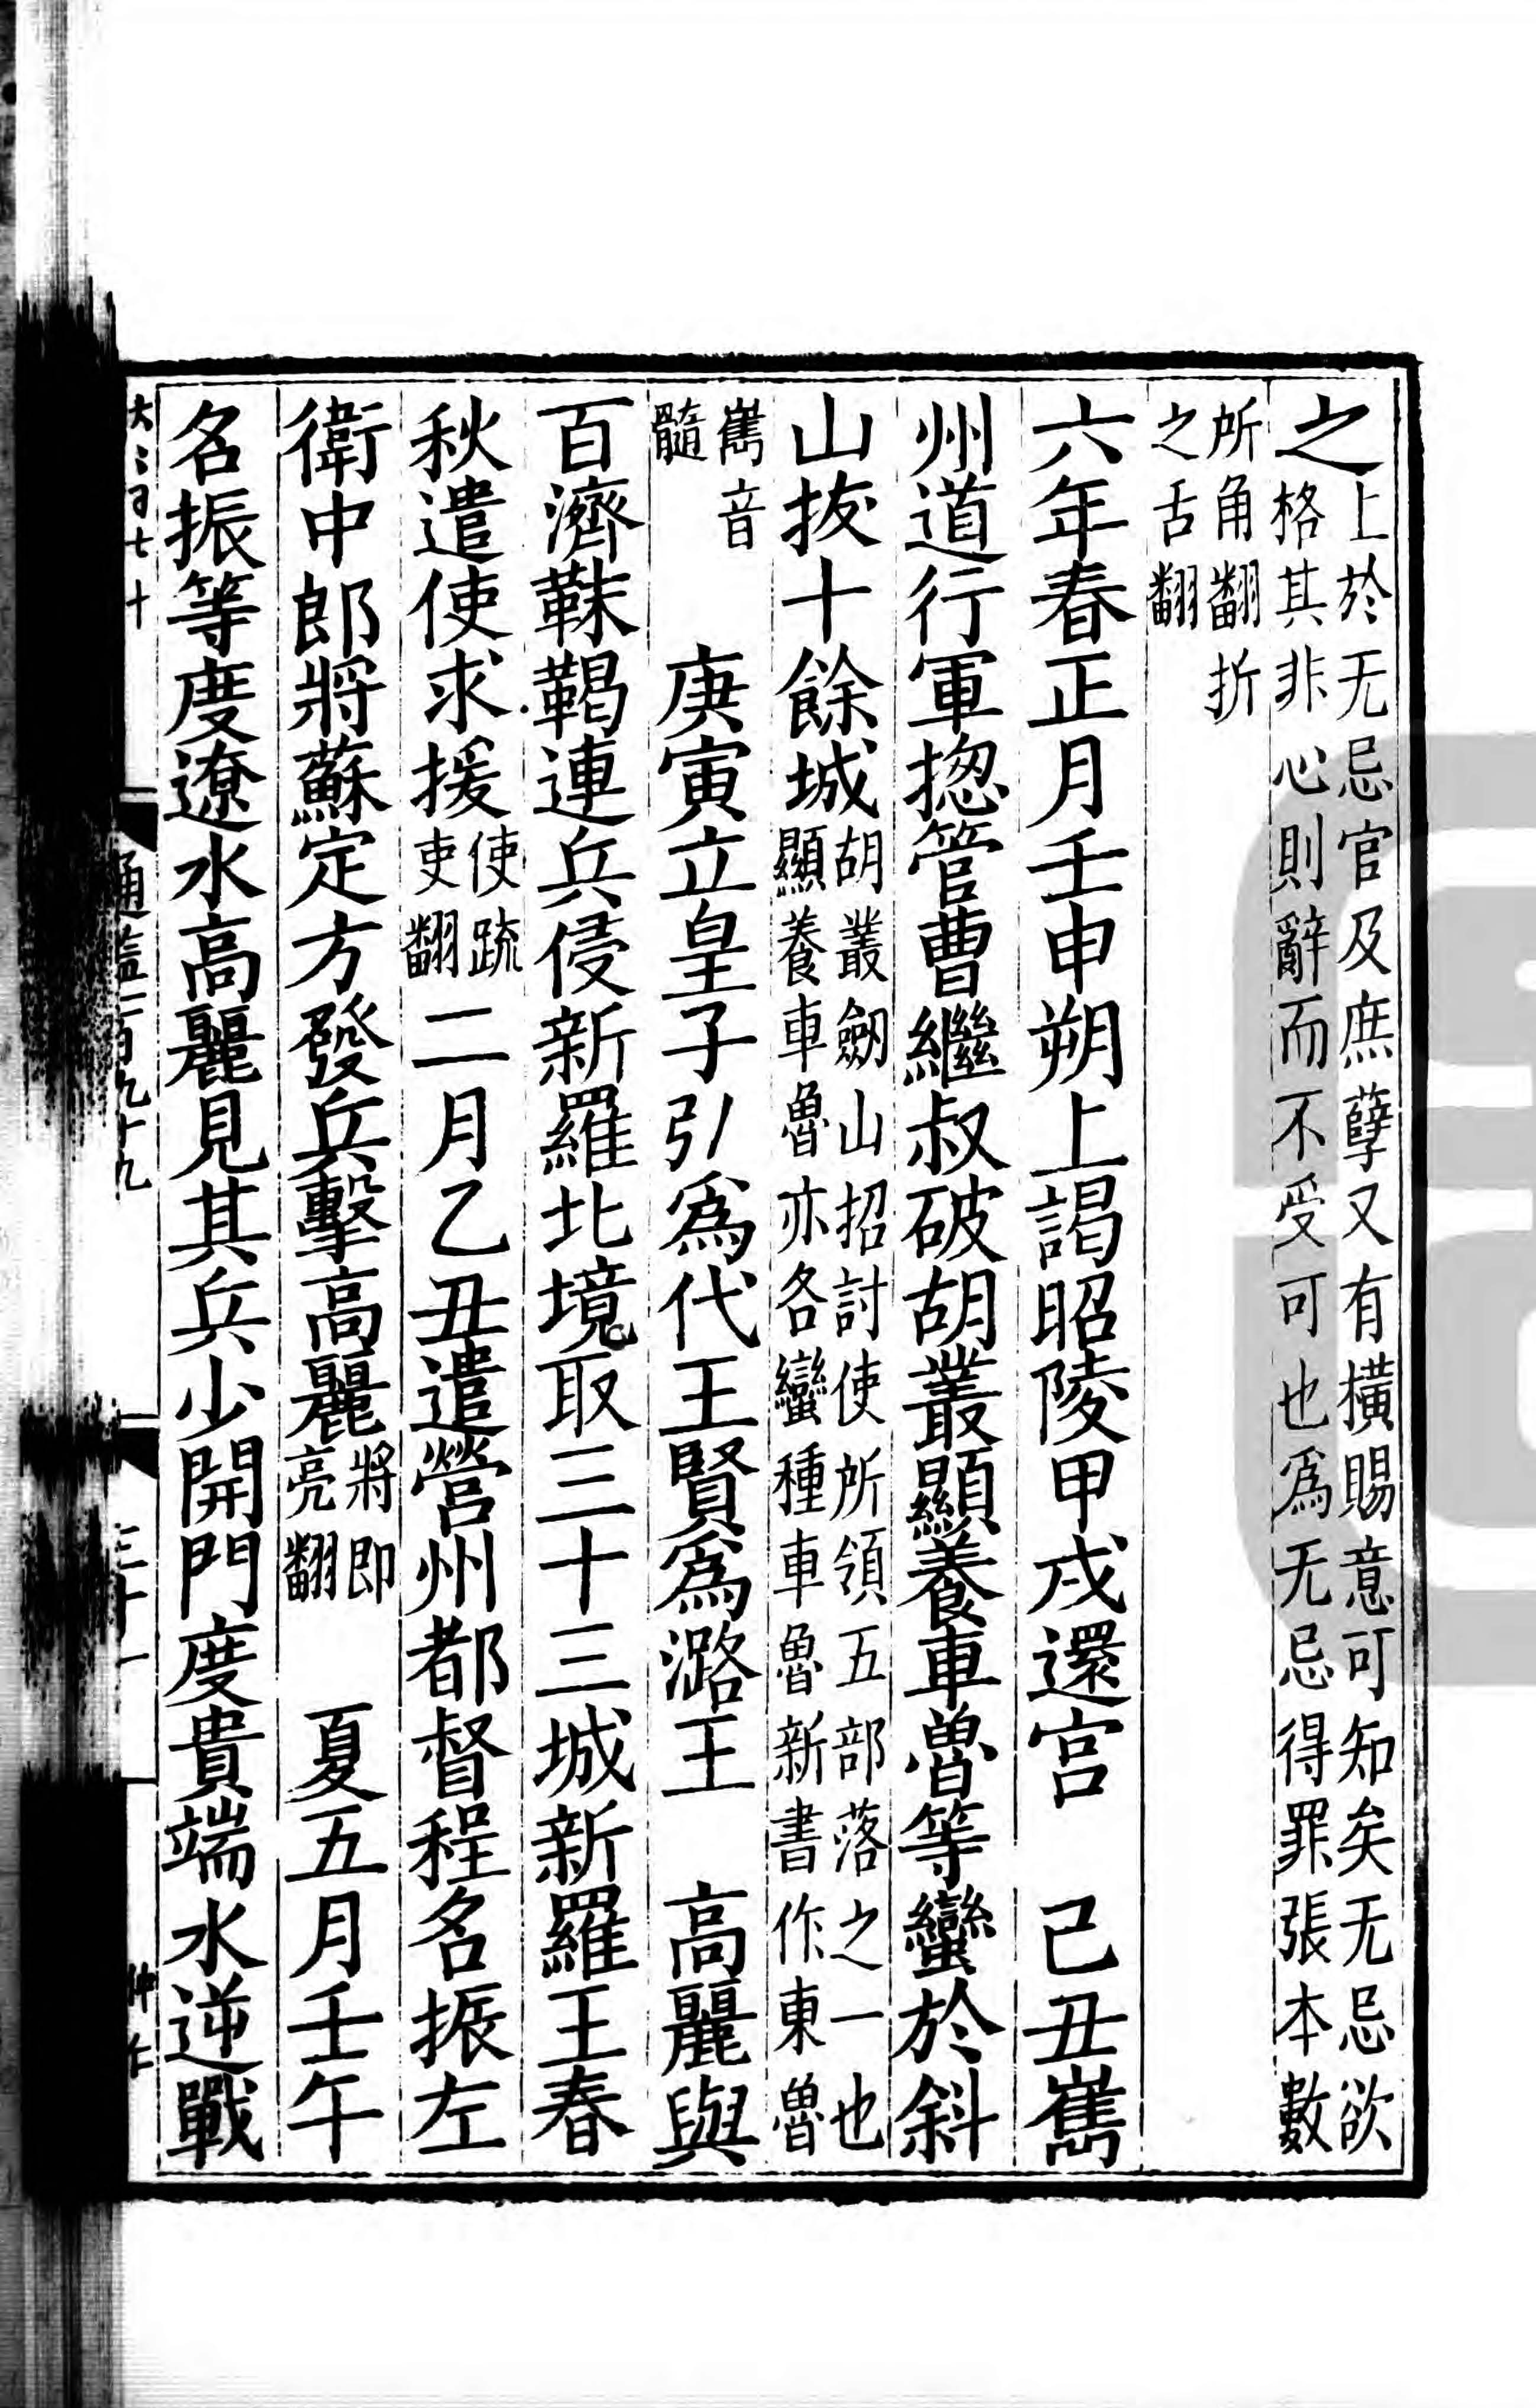 之上於无忌官及庶孽又有橫賜意可知矣无忌欲
格其非心則辭而不受可也爲无忌得罪張本數
所角翻折
之舌翻
六年春正月壬申朔上謁昭陵甲戌還宮　己丑嶲
州道行軍揔管曹繼叔破胡叢顯養車魯等蠻於斜
山拔十餘城胡叢劒山招討使所領五部落之一也
顯養車魯亦各蠻種車魯新書作東魯
嶲音
髓　庚寅立皇子弘爲代王賢爲潞王　高麗與
百濟靺鞨連兵侵新羅北境取三十三城新羅王春
秋遣使求援使疏
吏翻二月乙丑遣營州都督程名振左
衛中郎將蘇定方發兵擊高麗將即
亮翻　夏五月壬午
名振等度遼水高麗見其兵少開門度貴端水逆戰
通鑑一百九十九
三十一